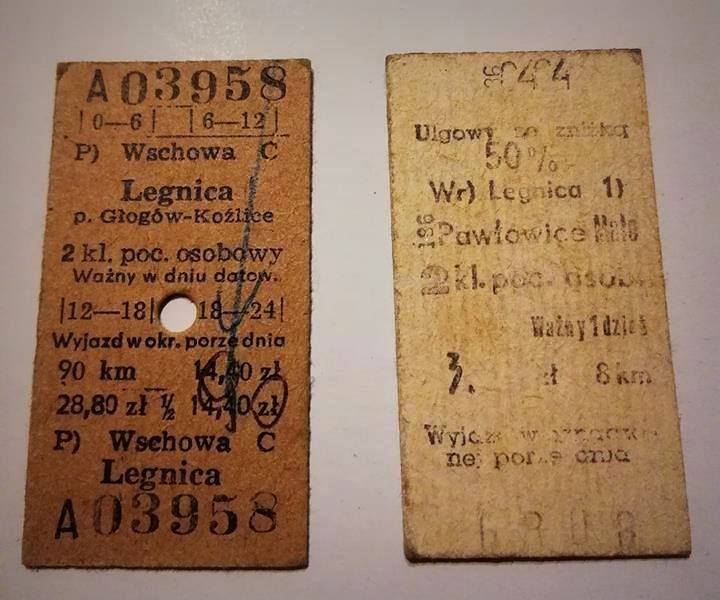 A 03958
|0—6| |6—12|
P) Wschowa C
Legnica
p. Głogów-Koźlice
2 kl. poc. osobowy
Ważny w dniu datow.
|12—18| 18—24|
Wyjazd w okr. porze dnia
90 km 14,40 zł
28,80 zł ½ 14,40 zł
P) Wschowa C
Legnica
A 03958
Ulgowy ze zniżką
50%
Wr) Legnica 1)
Pawłowice Małe
2 kl. poc. osob.
Ważny 1 dzień
3. zł 8 km
Wyjazd w
nej porze dnia